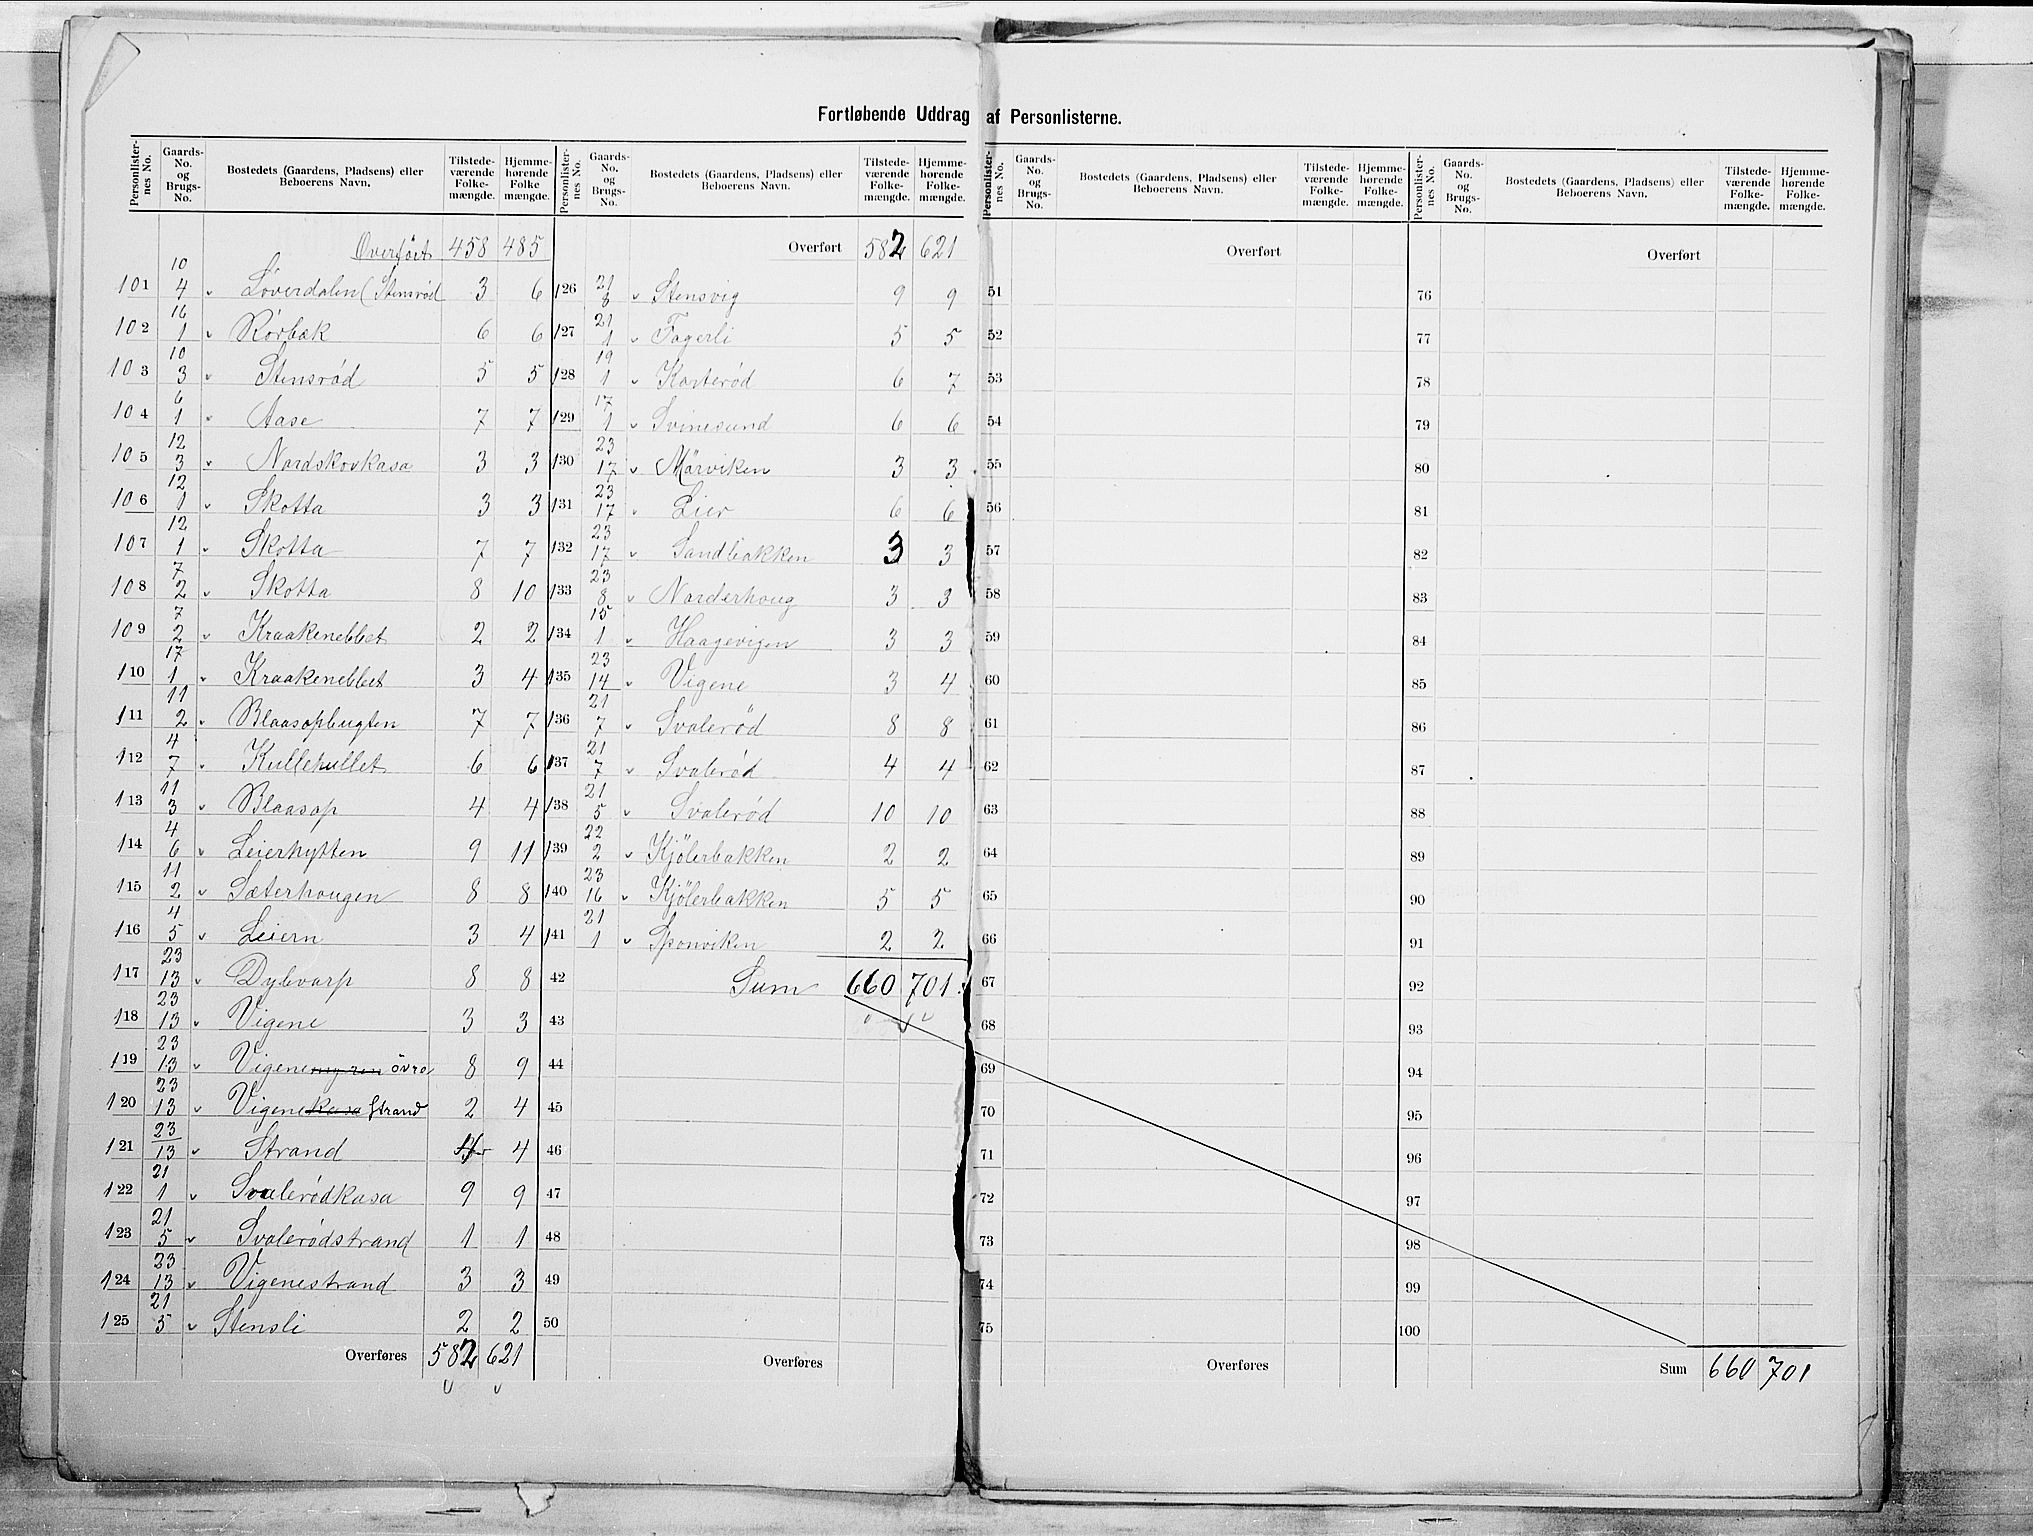 Fortløbende Uddrag af Personlisterne.
Personlister-nes No. | Gaards-No. og Brugs-No. | Bostedets (Gaardens, Pladsens) eller Beboerens Navn. | Tilstede-værende Folke-mængde. | Hjemme-hørende Folke mængde.
Overført 458 485
101 10/4 Löverdalen (Stensrød 3 6
102 16/1 Rörbæk 6 6
103 10/3 Stensrød 5 5
104 6/1 Aase 7 7
105 12/3 Nordskovkasa 3 3
106 12/1 Skotta 3 3
107 12/1 Skotta 7 7
108 7/2 Skotta 8 10
109 7/2 Kraakenebbet 2 2
110 17/1 Kraakenebbet 3 4
111 11/2 Blaasopbugten 7 7
112 4/7 Kullehullet 6 6
113 11/3 Blaasop 4 4
114 4/6 Leierhytten 9 11
115 11/2 Sæterhougen 8 8
116 4/5 Leiern 3 4
117 23/13 Dybvarp 8 8
118 23/13 Vigene 3 3
119 23/13 Vigene övre 8 9
120 23/13 Vigenekasa Strand 2 4
121 23/13 Strand 4
122 21/1 Svalerødkasa 9 9
123 21/5 Svalerødstrand 1 1
124 23/13 Vigenestrand 3 3
125 21/5 Stensli 2 2
Overføres 582 621
Personlister-nes No. | Gaards-No. og Brugs-No. | Bostedets (Gaardens, Pladsens) eller Beboerens Navn. | Tilstede-værende Folke-mængde. | Hjemme-hørende Folke-mængde.
Overført 582 621
126 21/8 Stensvig 9 9
127 21/1 Fagerli 5 5
128 19/1 Korterød 6 7
129 17/1 Svinesund 6 6
130 23/17 Mörviken 3 3
131 23/17 Lier 6 6
132 23/17 Sandbakken 3 3
133 23/8 Norderhoug 3 3
134 15/1 Haagevigen 3 3
135 23/14 Vigene 3 4
136 21/7 Svalerød 8 8
137 21/7 Svalerød 4 4
138 21/5 Svalerød 10 10
139 22/2 Kjölerbakken 2 2
140 23/16 Kjölerbakken 5 5
141 21/1 Sponviken 2 2
42 Sum 660 701
43
44
45
46
47
48
49
50
Overføres
Personlister-nes No. | Gaards-No. og Brugs-No. | Bostedets (Gaardens, Pladsens) eller Beboerens Navn. | Tilstede-værende Folke-mængde. | Hjemme-hørende Folke-mængde.
Overført
51
52
53
54
55
56
57
58
59
60
61
62
63
64
65
66
67
68
69
70
71
72
73
74
75
Overføres
Personlister-nes No. | Gaards-No. og Brugs-No. | Bostedets (Gaardens, Pladsens) eller Beboerens Navn. | Tilstede-værende Folke-mængde. | Hjemme-hørende Folke-mængde.
Overført
76
77
78
79
80
81
82
83
84
85
86
87
88
89
90
91
92
93
94
95
96
97
98
99
100
Sum 660 701